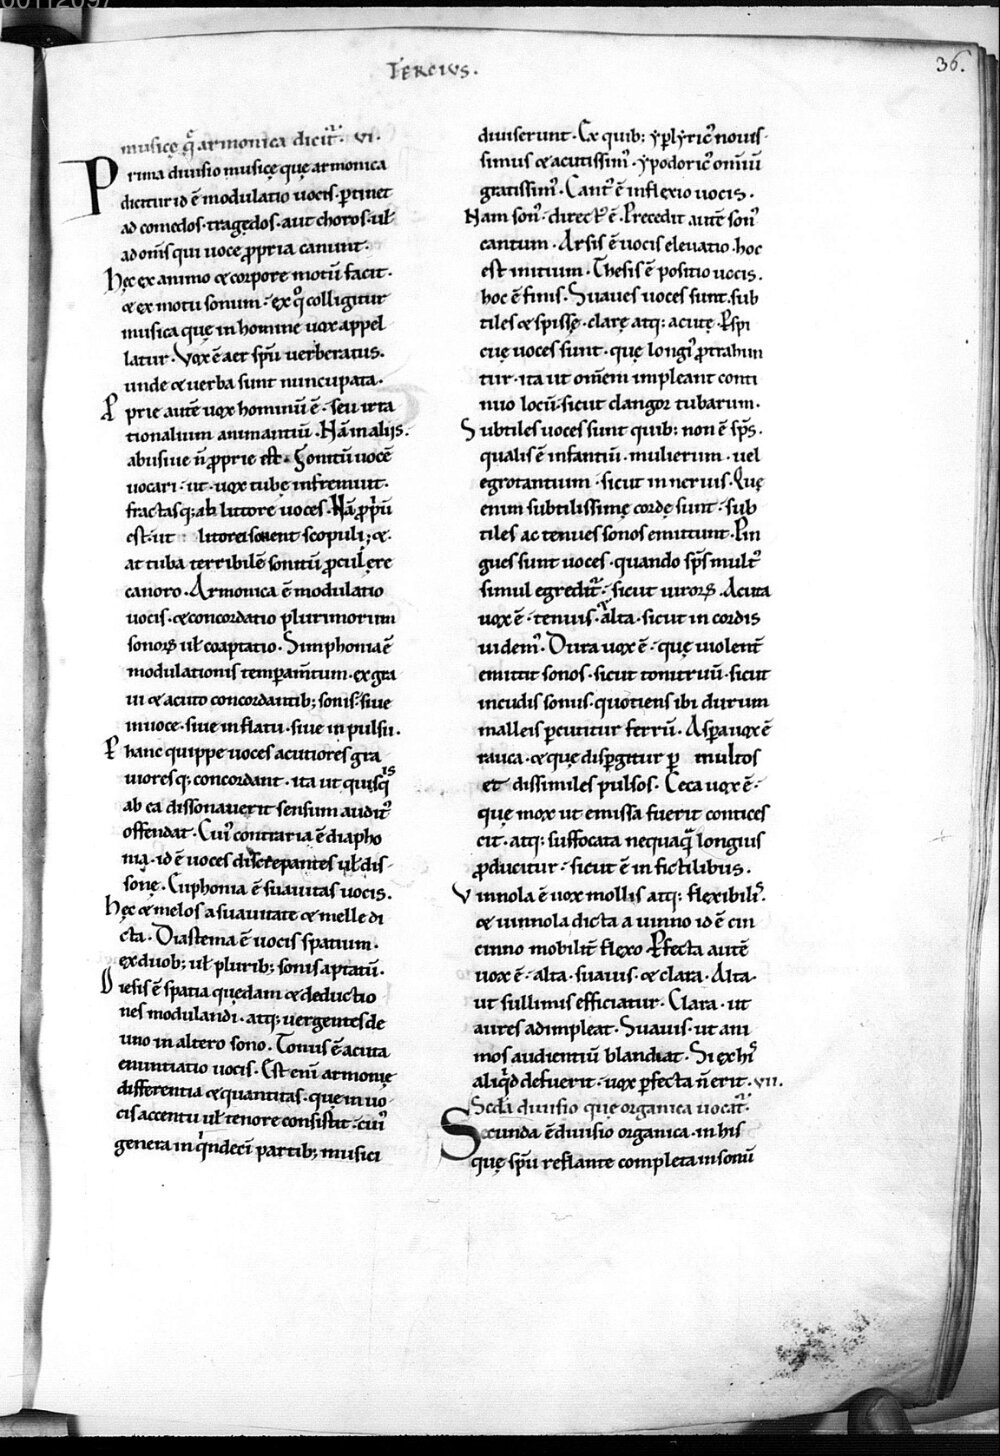 TERCIUS.
36.
musicę q̄ armonica dicit̄. vi.
Prima diuisio musicę quę armonica
dicitur id ē modulatio uocis. ptinet
ad comędos. tragędos. aut choros. ul
ad om̄s qui uoce ꝓpria canunt.
hęc ex animo & corpore motū facit.
& ex motu sonum. ex q̊ colligitur
musica quę in homine uox appel
latur. Vox ē aer spū uerberatus.
unde & uerba sunt nuncupata.
P prie autē uox hominū ē. seu irra
tionalium animantiū. Nā in aliis.
abusiue n̄ ꝓprie est. Sonitū uocē
uocari. ut. uox tubę infremuit.
fractasq; ab littore uoces. Nā ꝓpriū
est. ut litorei sonent scopuli; &.
at tuba terribilē sonitū ꝓcul ęre
canoro. Armonica ē modulatio
uocis. & concordatio plurimorum
sonoꝝ ul coaptatio. Simphonia ē
modulationis temperam̄tum. ex gra
ui & acuto concordantib; sonis. siue
in uoce. siue in flatu. siue in pulsu.
P hanc quippe uoces acutiores gra
uioresq; concordant. ita ut quisq̄s
ab ea dissonauerit sensum audit᷒
offendat. Cui᷒ contraria ē diapho
nia. id ē uoces discrepantes ul dis
sonę. Euphonia ē suauitas uocis.
hęc & melos a suauitate & melle di
cta. Diastema ē uocis spatium.
ex duob; ul plurib; sonis aptatū.
Diesis ē spatia quędam & deductio
nes modulandi. atq; uergentes de
uno in altero sono. Tonus ē acuta
enuntiatio uocis. Est enī armonię
differentia & quantitas. quę in uo
cis accentu ul tenore consistit. cui᷒
genera in q̍ndeci partib; musici
diuiserunt. Ex quib; yplyric᷒ nouis
simus & acutissim᷒. ypodoric᷒ omīū
grauissim᷒. Cant᷒ ē inflexio uocis.
Nam son᷒ direct᷒ ē. Precedit autē son᷒
cantum. Arsis ē uocis eleuatio. hoc
est initium. Thesis ē positio uocis.
hoc ē finis. Suaues uoces sunt. sub
tiles & spissę. clarę atq; acutę. Pspi
cuę uoces sunt. quę longi᷒ ꝓtrahun
tur. ita ut omnem impleant conti
nuo locū. sicut clangor tubarum.
Subtiles uoces sunt quib; non ē sp̄s.
qualis ē infantiū. mulierum. uel
egrotantium. sicut in neruis. Quę
enim subtilissimę cordę sunt. sub
tiles ac tenues sonos emittunt. Pin
gues sunt uoces. quando sp̄s mult᷒
simul egredit̄. sicut uiroꝝ. Acuta
uox ē. tenuis. alta. sicut in cordis
uidem᷒. Dura uox ē. quę uiolent̄
emittit sonos. sicut tonitruū. sicut
incudis sonus. quotiens ibi durum
malleis pcutitur ferrū. Aspa uox ē
rauca. & quę dispgitur p multos
et dissimiles pulsos. Ceca uox ē.
quę mox ut emissa fuerit contices
cit. atq; suffocata nequaquā longius
ꝓducitur. sicut ē in fictilibus.
Vinnola ē uox mollis atq; flexibilis.
& uinnola dicta a uinno id ē cin
cinno mobilit̄ flexo. Pfecta autē
uox ē. alta. suauis. & clara. Alta.
ut sullimis efficiatur. Clara. ut
aures adimpleat. Suauis. ut ani
mos audientiū blandiat. Si ex his
aliq̍d defuerit. uox pfecta n̄ erit. vii.
Secda diuisio quę organica uocat̄.
Secunda ē diuisio organica. in his
quę spū reflante completa in sonū